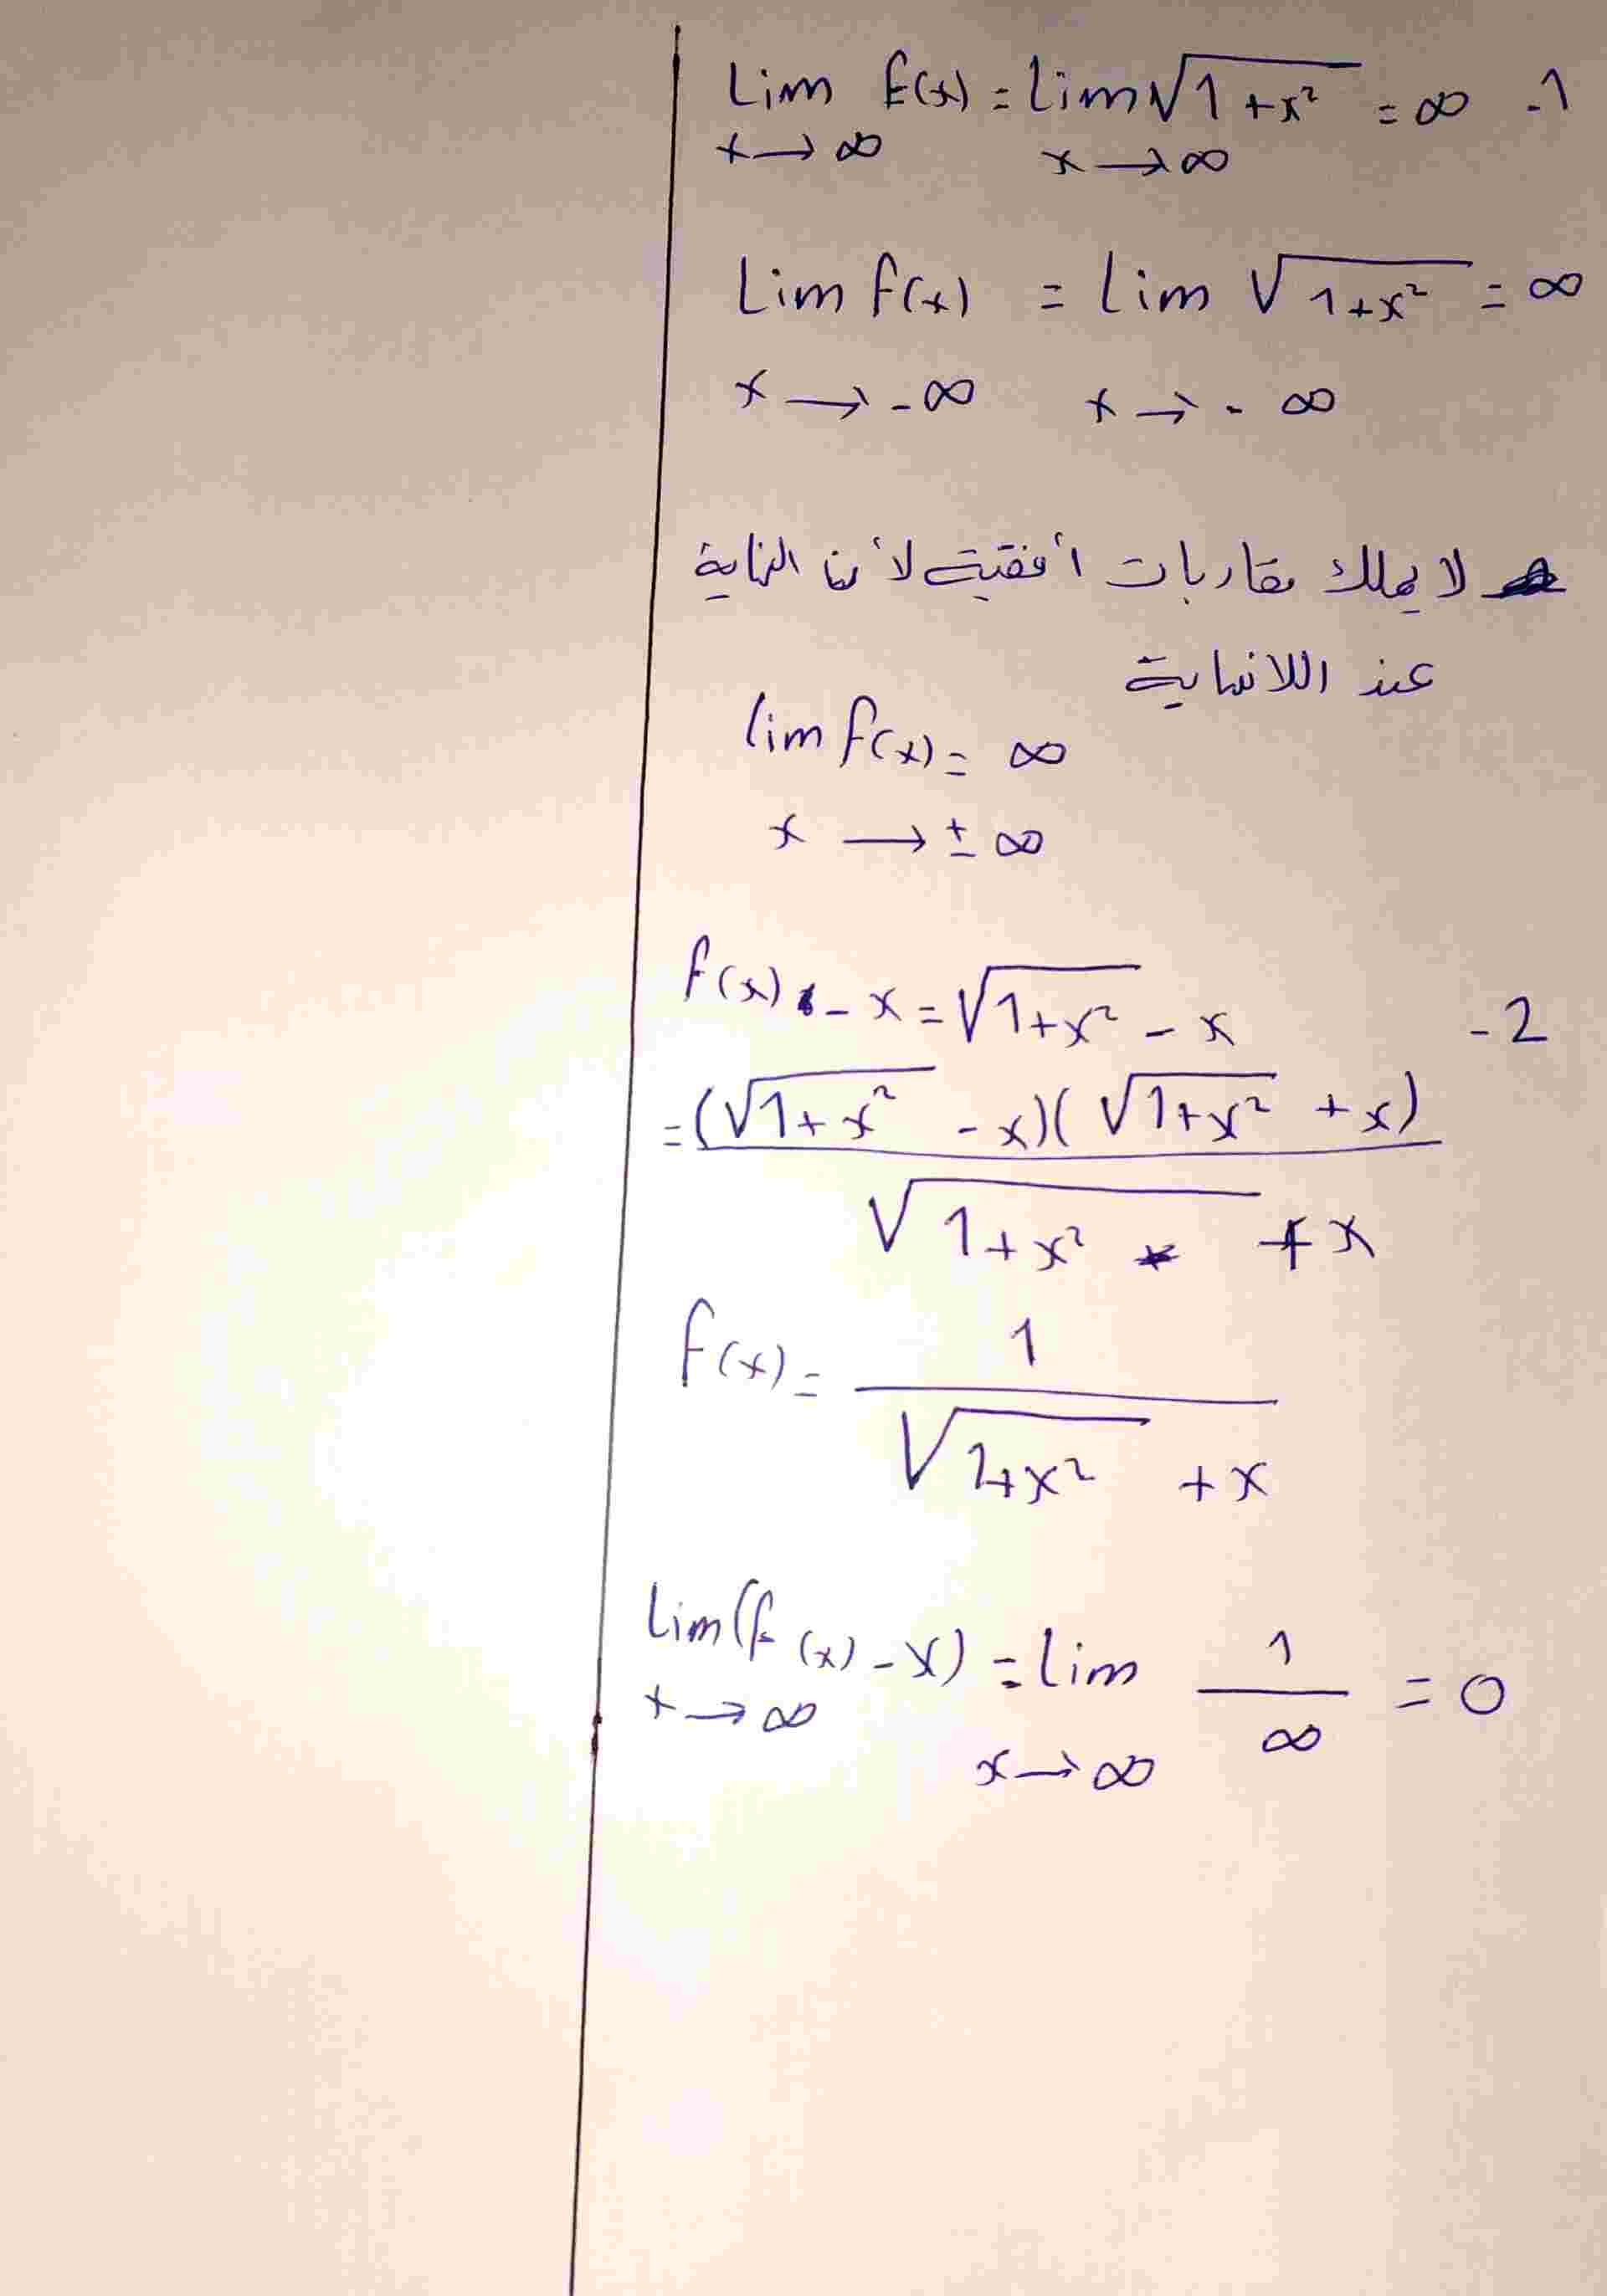 Lim f(x) = lim √1+x² = ∞ -1
x→∞ x→∞
Lim f(x) = Lim √1+x² = ∞
x→-∞ x→-∞
لا يملك مقاربات أفقية لأن النهاية
عند اللانهاية
lim f(x) = ∞
x→±∞
f(x) - x = √1+x² - x -2
= (√1+x² - x)(√1+x² + x)
√1+x² + x
f(x) = 1
√1+x² + x
Lim(f(x) - x) = lim 1/∞ = 0
x→∞ x→∞